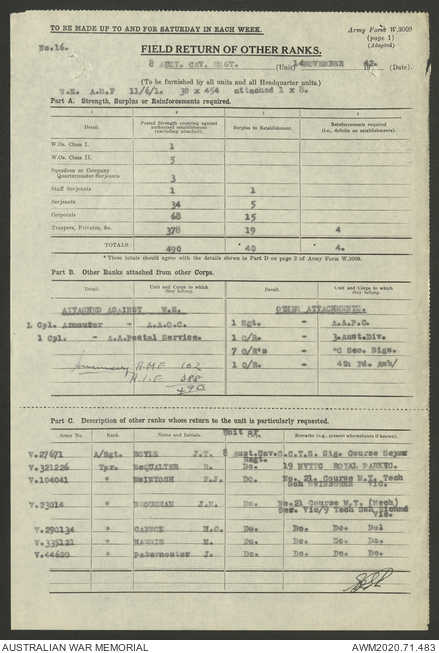 TO BE MADE UP TO AND FOR SATURDAY IN EACH WEEK.
Army Form W.3009
(page 1)
(Adapted)
No.16.
FIELD RETURN OF OTHER RANKS.
8 AUST. CAV. REGT. (Unit) 14 NOVEMBER 42. (Date).
(To be furnished by all units and all Headquarter units.)
W.E. A.M.F 11/6/1. 30 x 454 attached 1 x 8.
Part A. Strength, Surplus or Reinforcements required.
1 2 3 4
Detail. Posted Strength counting against authorized establishment (excluding attached). Surplus to Establishment. Reinforcements required (i.e., deficits on establishments).
W.Os. Class I. 1
W.Os. Class II. 5
Squadron or Company Quartermaster-Serjeants 3
Staff Serjeants 1 1
Serjeants 34 5
Corporals 68 15
Troopers, Privates, &c. 378 19 4
TOTALS 490 * 40 4.
* These totals should agree with the details shown in Part D on page 2 of Army Form W.3009.
Part B. Other Ranks attached from other Corps.
Detail. Unit and Corps to which they belong. Detail. Unit and Corps to which they belong.
ATTACHED AGAINST W.E. OTHER ATTACHMENTS.
1 Cpl. Armourer - A.A.O.C. 1 Sgt. - A.A.P.C.
1 Cpl. - A.A.Postal Service. 1 O/R. - 3.Aust.Div.
7 O/R's - "C Sec. Sigs.
Summary A.M.F 102 1 O/R. - 4th Fd. Amb/
A.I.F 388
490
Part C. Description of other ranks whose return to the unit is particularly requested.
Army No. Rank. Name and Initials. Unit or Corps. Remarks (e.g., present whereabouts if known).
V.27671 A/Sgt. BOYLE J.T. 8 Aust.Cav. Regt. S.C.T.S. Sig. Course Seymr
V.321226 Tpr. McQUALTER R. Do. 19 NYTIC ROYAL PARKVIC.
V.104041 " McINTOSH F.J. Do. No. 21. Course M.T. Tech Sch SWINBURNE Vic.
V.23014 " BROUGHAN J.N. Do. No.21 Course W.T. (Mech) Ses. Vic/9 Tech Sch Richmd Vic.
V.290134 " CANNON H.G. Do. Do. Do.
V.335121 " HARRIS H. Do. Do. Do.
V.44620 " Paternoster J. Do. Do. Do.
AUSTRALIAN WAR MEMORIAL
AWM2020.71.483